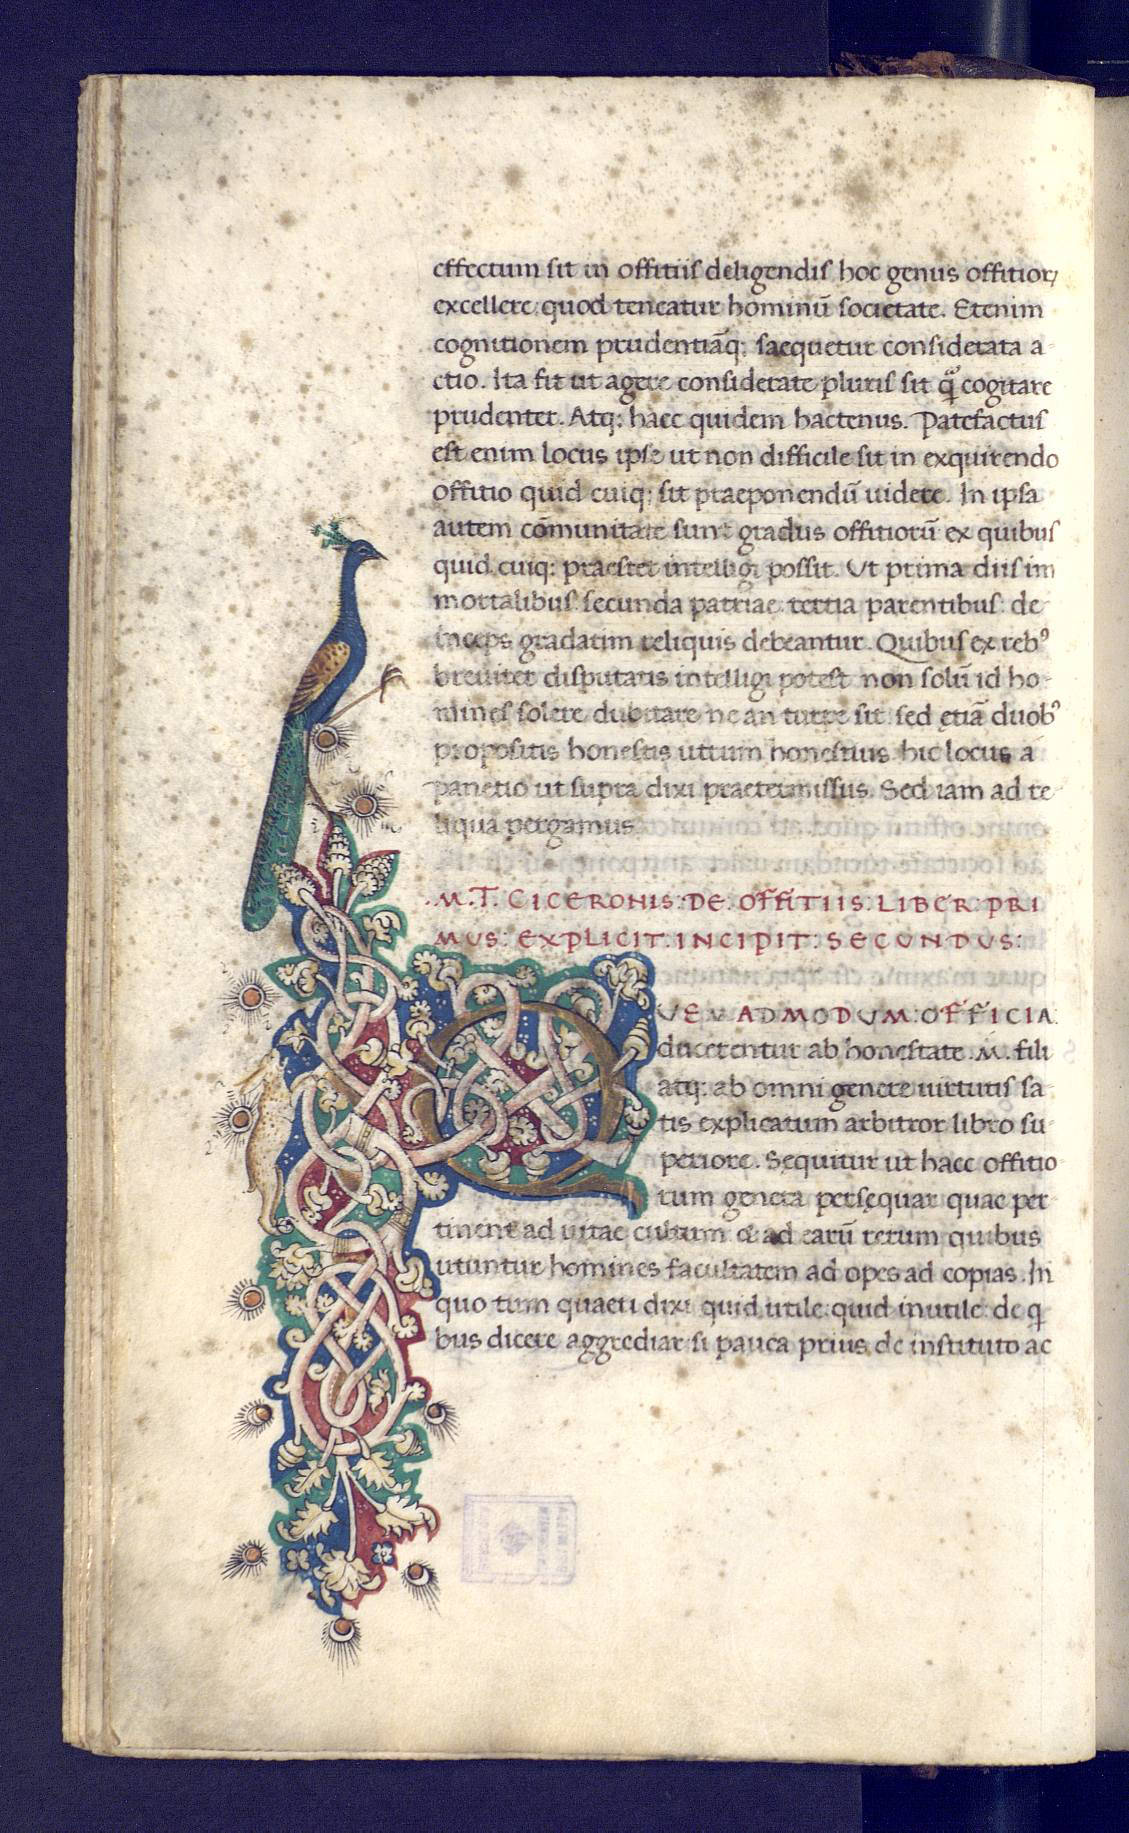 effectum sit in offitiis deligendis hoc genus offitioꝝ
excellere quod teneatur hominū societate. Etenim
cognitionem prudentiāq; saequetur considerata a-
ctio. Ita fit ut agere considerate pluris sit q̃ cogitare
prudenter. Atq; haec quidem hactenus. Patefactus
est enim locus ipse ut non difficile sit in exquirendo
offitio quid cuiq; sit praeponendū uidere. In ipsa
autem cōmunitate sunt gradus offitiorū ex quibus
quid cuiq; praestet intelligi possit. Ut prima diis im
mortalibus: secunda patriae: tertia parentibus: de-
inceps gradatim reliquis debeantur. Quibus ex rebꝰ
breuiter disputatis intelligi potest non solū id ho-
mines solere dubitare ne an turpe sit: sed etiā duobꝰ
propositis honestis utrum honestius. hic locus a
panetio ut supra dixi praetermissus. Sed iam ad re-
liqua pergamus.
.M.T. CICERONIS: DE. OFFITIIS: LIBER: PRI
MUS: EXPLICIT: INCIPIT: SECUNDUS:
QUEMADMODUM: OFFICIA
ducerentur ab honestate .M. fili
atq; ab omni genere uirtutis sa-
tis explicatum arbitror libro su-
periore. Sequitur ut haec offitio
rum genera persequar quae per-
tinent ad uitae cultum & ad earū rerum quibus
utuntur homines facultatem ad opes ad copias. In
quo tum quaeri dixi quid utile: quid inutile: de q
bus dicere aggrediar: si pauca prius de instituto ac